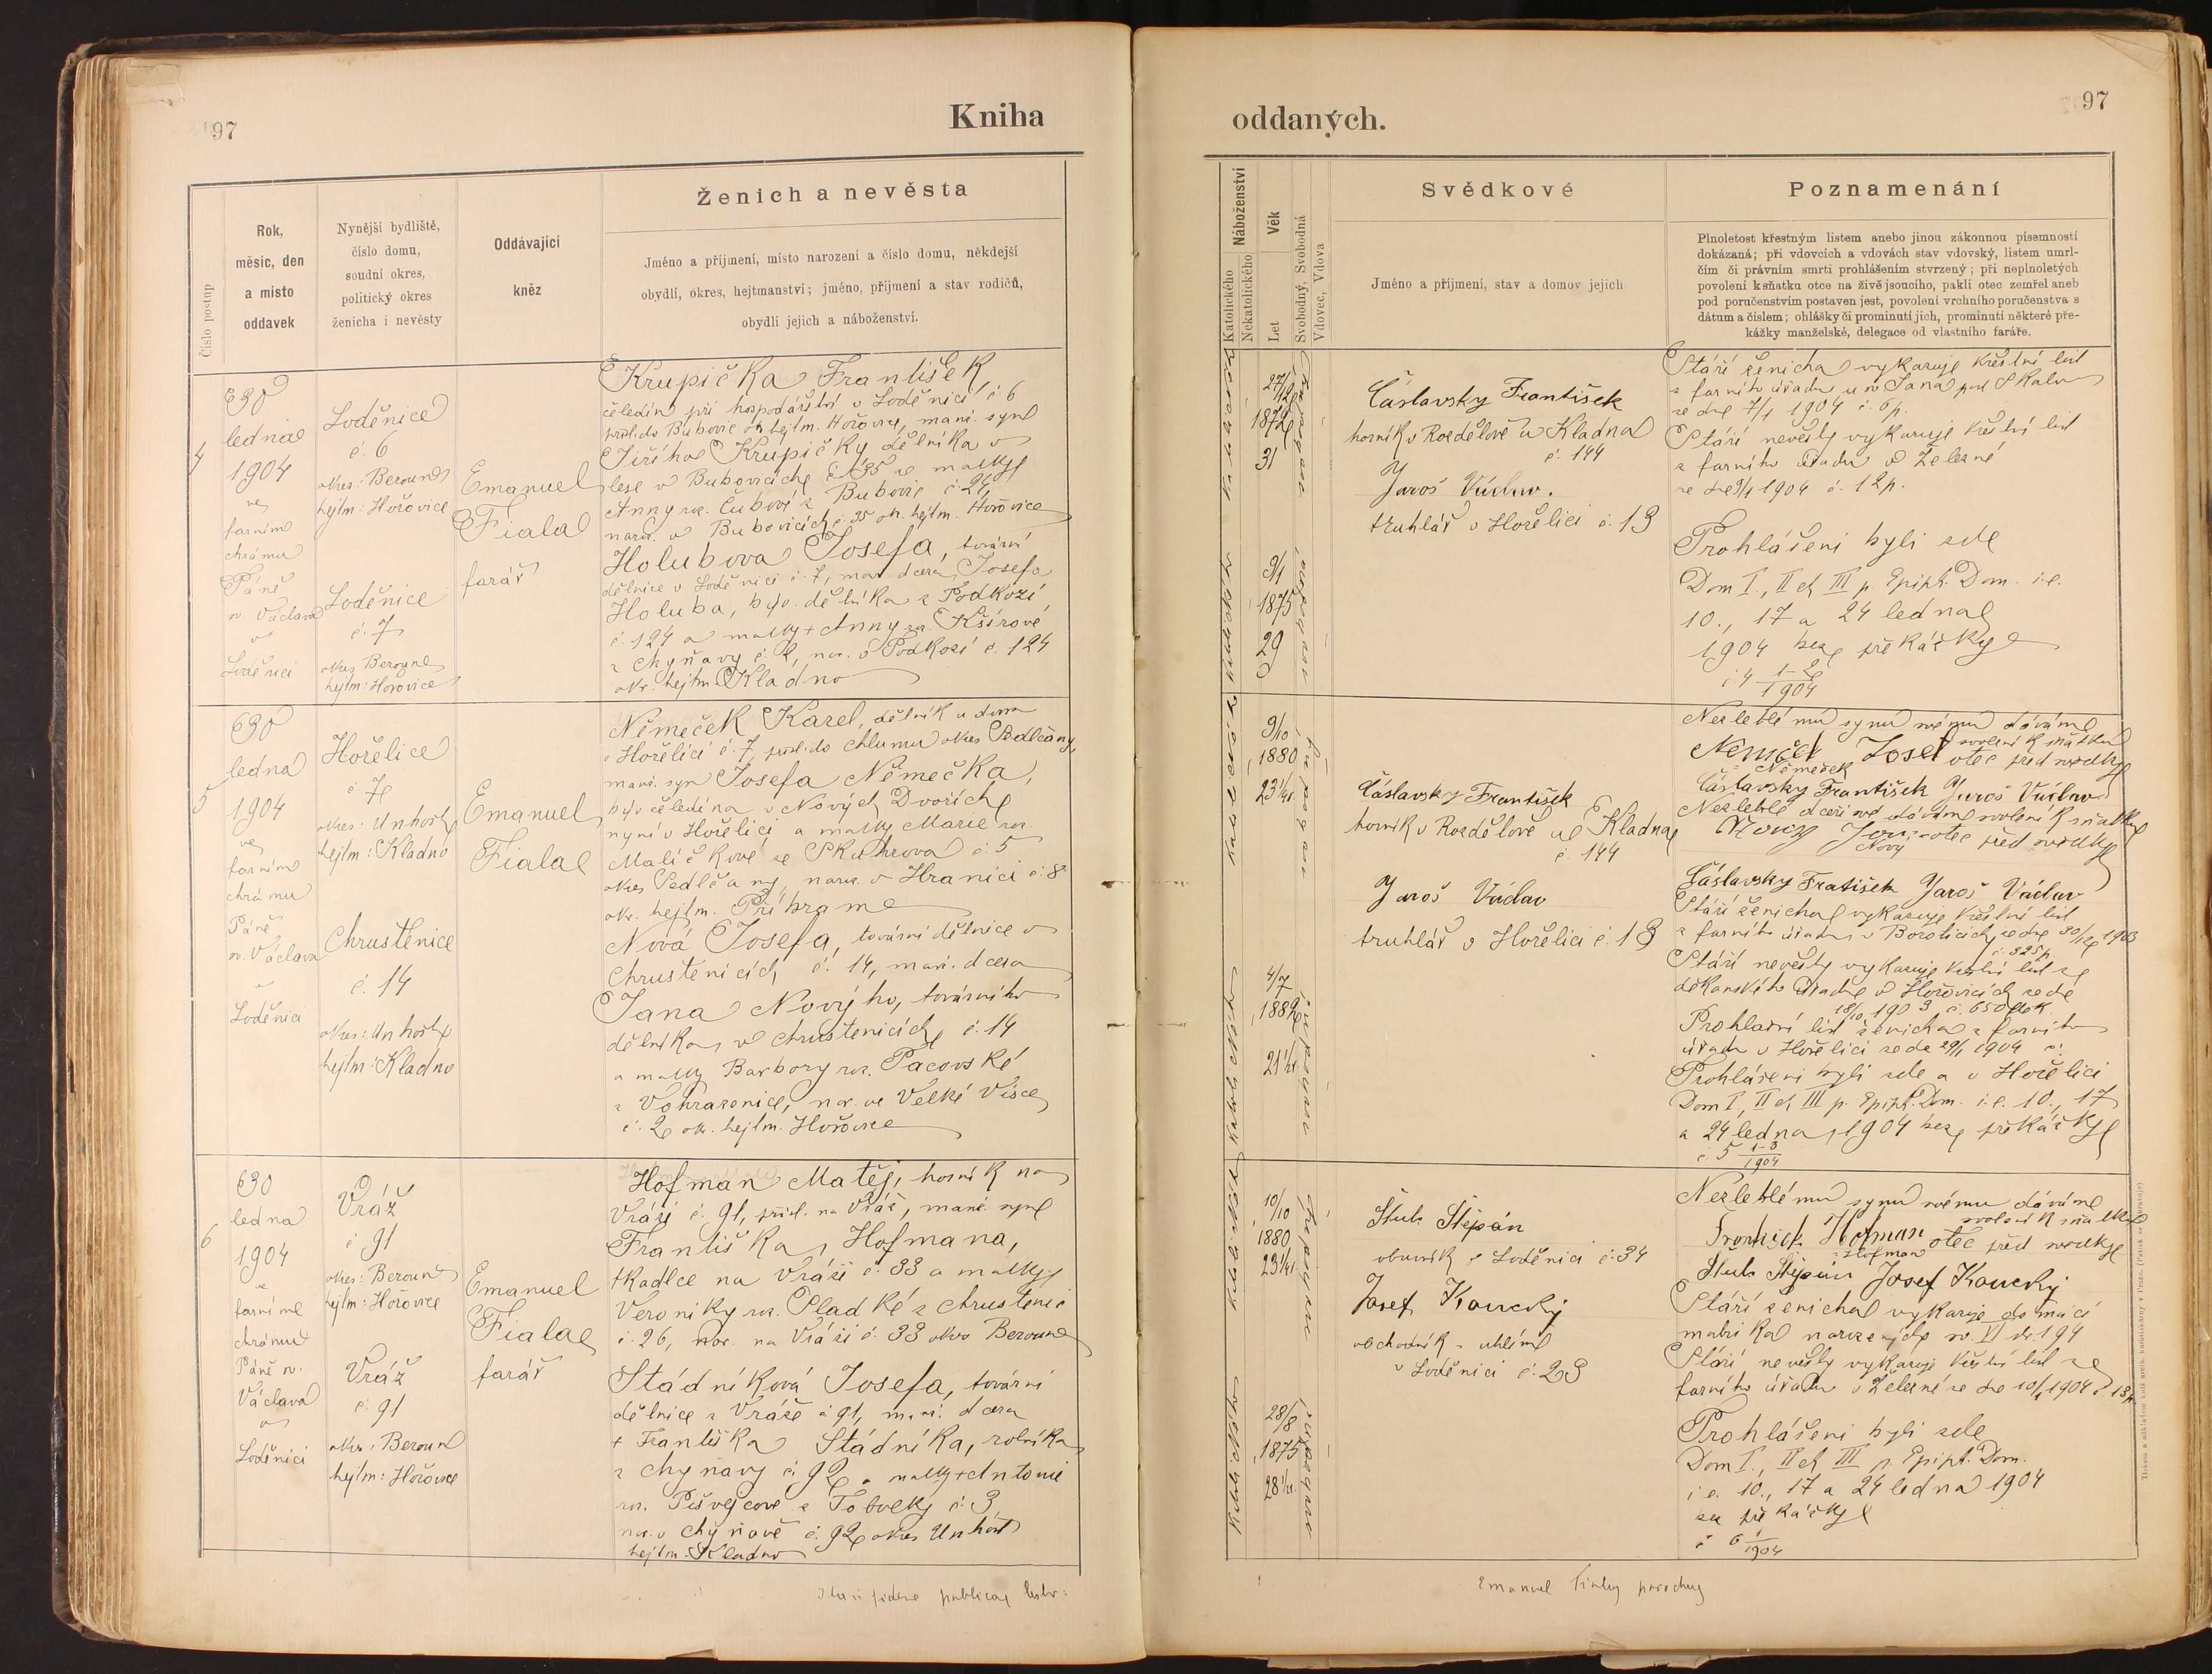 97
Kniha
Ženich a nevěsta
Číslo postup
Rok,
měsíc, den
a místo
oddavek
Nynější bydliště,
číslo domu,
soudní okres,
politický okres
ženicha i nevěsty
Oddávající
kněz
Jméno a příjmení, místo narození a číslo domu, někdejší
obydlí, okres, hejtmanství; jméno, příjmení a stav rodičů,
obydlí jejich a náboženství.
4
30
ledna
1904
ve
farním
chrámu
Páně
sv. Václava
v
Loděnici
Loděnice
č. 6
okres: Beroun
hejtm: Hořovice
Loděnice
č. 7
okres Beroun
hejtm: Hořovice
Emanuel
Fiala
farář
Krupička František
čeledín při hospodářství v Loděnici č. 6
přísl. do Bubovic ok. hejtm. Hořovice, manž. syn
Jiřího Krupičky dělníka v
lese v Bubovicích č. 35 a matky
Anny roz. z Bubovic č. 24,
naroz. v Bubovicích č. 35 ok. hejtm. Hořovice
Holubova Josefa, tovární
dělnice v Loděnici č. 7, man. dcera Josefa
Holuba, býv. dělníka z Podkozí
č. 124 a matky + Anny roz. Kšírové
z Chyňavy č. 2, nar. v Podkozí č. 124
okr. hejtm. Kladno
5
30
ledna
1904
ve
farním
chrámu
Páně
sv. Václava
v
Loděnici
Hořelice
č. 7
okres: Unhošť
hejtm: Kladno
Chrustenice
č. 14
okres: Unhošť
hejtm: Kladno
Emanuel
Fiala
Němeček Karel, dělník u
v Hořelici č. 7, přísl. do Chlumu okres Sedlčany,
manž. syn Josefa Němečka,
býv. čeledína v Nových Dvořích
nyní v Hořelici a matky Marie roz.
Malíčkové ze Skuhrova č. 5
okres Sedlčany, naroz. v Hranici č. 8
okr. hejtm. Příbram
Nová Josefa, tovární dělnice v
Chrustenicích č. 14, manž. dcera
Jana Nového, továrního
dělníka v Chrustenicích č. 14
a matky Barbory roz. Pacovské
z Vohrazenic, nar. ve Velké Vísce
č. 2 ok. hejtm. Hořovice
6
30
ledna
1904
ve
farním
chrámu
Páně sv.
Václava
v
Loděnici
Vráž
č 91
okres: Beroun
hejtm: Hořovice
Vráž
č. 91
okres: Beroun
hejtm: Hořovice
Emanuel
Fiala
farář
Hofman Matěj, horník na
Vráži č. 91, přísl. na Vráž, manž. syn
Františka Hofmana,
tkadlce na Vráži č. 33 a matky
Veroniky roz. Sladké z Chrustenic
č. 26, nar. na Vráži č. 33 okres Beroun
Stádníková Josefa, tovární
dělnice z Vráže č 91, manž. dcera
+ Františka Stádníka, rolníka
z Chyňavy č. 92 a matky + Antonie
roz. z č. 3
nar. v Chyňavě č. 92 okres Unhošť
hejtm. Kladno
97
oddaných.
Náboženství
Katolického
Nekatolického
Věk
Let
Svobodný, Svobodná
Vdovec, Vdova
Svědkové
Jméno a příjmení, stav a domov jejich
Poznamenání
Plnoletost křestným listem anebo jinou zákonnou písemností
dokázaná; při vdovcích a vdovách stav vdovský, listem umrl-
čím či právním smrti prohlášením stvrzený; při neplnoletých
povolení k sňatku otce na živě jsoucího, pakli otec zemřel aneb
pod poručenstvím postaven jest, povolení vrchního poručenstva s
dátum a číslem; ohlášky či prominutí jich, prominutí některé pře-
kážky manželské, delegace od vlastního faráře.
27/12
1872
31
9/1
1875
29
Čáslavsky František
horník v Rozdělově u Kladna
č. 144
Jaroš Václav.
truhlář v Hořelici č. 13
Stáří ženicha vykazuje křestní list
z farního úřadu u sv. Jana pod Skalou
ze dne 7/1 1904 č. 6 p.
Stáří nevěsty vykazuje křestní list
z farního úřadu v Železné
ze dne 9/1 1904 č. 12 p.
Prohlášeni byli zde
Dom I., II et III p. Epiph. Dom. i. e.
10., 17 a 24 ledna
1904 bez překážky
č 4 1904
9/10
1880
23 1/4
4/7
1882
21 1/2
Čáslavsky František
horník v Rozdělově u Kladna
č. 144
Jaroš Václav
truhlář v Hořelici č. 13
Nezletilému synu svému dávám
svolení k sňatku
Němeček Josef otec před svědky
Němeček
Čáslavsky František Jaroš Václav
Nezletilé dceři své dávám svolení k sňatku
Nový Jan otec před svědky
Nový
Čáslavsky Fratišek Jaroš Václav
Stáří ženicha vykazuje křestní list
z farního úřadu v Boroticích ze dne 30/12 1903
č. 325 p.
Stáří nevěsty vykazuje křestní list ze
děkanského úřadu v Hořovicích ze dne
18/10 1903 č. 650
Prohlašní list ženicha z farního
úřadu v Hořelici ze dne 29/1 1904
Prohlášeni byli zde a v Hořelici
Dom I., II et III p. Epiph. Dom. i. e. 10., 17
a 24 ledna 1904 bez překážky
č. 5 1-3 1904
10/10
1880
23 1/4
28/8
1875
28 1/2
Štub Štěpán
obuvník v Loděnici č. 34
Josef Koucký
obchodník s uhlím
v Loděnici č. 23
Nezletilému synu svému dávám
svolení k sňatku
František Hofman otec před svědky
Hofman
Štub Štěpán Josef Koucký
Stáří ženicha vykazuje domácí
matrika narozených sv. VI str. 194
Stáří nevěsty vykazuje křestní list ze
farního úřadu v Železné ze dne 10/1 1904 č. 13 p.
Prohlášeni byli zde
Dom I., II et III p. Epiph. Dom.
i. e. 10., 17 a 24 ledna 1904
bez překážky
č 6 1904
Emanuel Fiala parochus